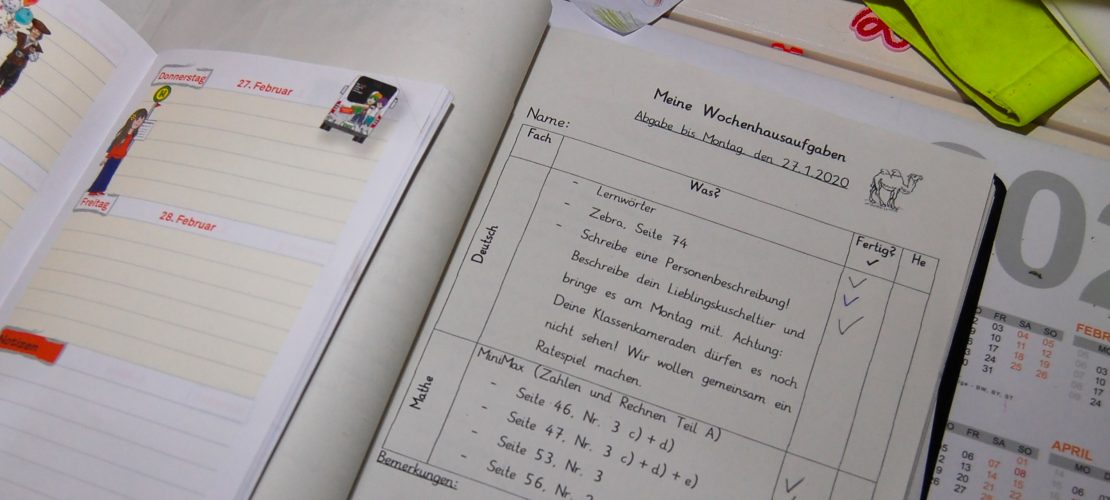 Donnerstag
27. Februar
Freitag
28. Februar
Notizen
Meine Wochenhausaufgaben
Abgabe bis Montag, den 27.1.2020
Name:
Fach
Was?
Fertig?
He
Deutsch
- Lernwörter
- Zebra, Seite 74
- Schreibe eine Personenbeschreibung!
Beschreibe dein Lieblingskuscheltier und
bringe es am Montag mit. Achtung:
Deine Klassenkameraden dürfen es noch
nicht sehen! Wir wollen gemeinsam ein
Ratespiel machen.
Mathe
MiniMax (Zahlen und Rechnen Teil A)
- Seite 46, Nr. 3 c) + d)
- Seite 47, Nr. 3 c) + d) + e)
- Seite 53, Nr. 3
- Seite 56, Nr.
Bemerkungen:
FR SA SO
03 04 05
10 11 12
17 18 19
24 25 26
31
DO FR SA SO
APRIL